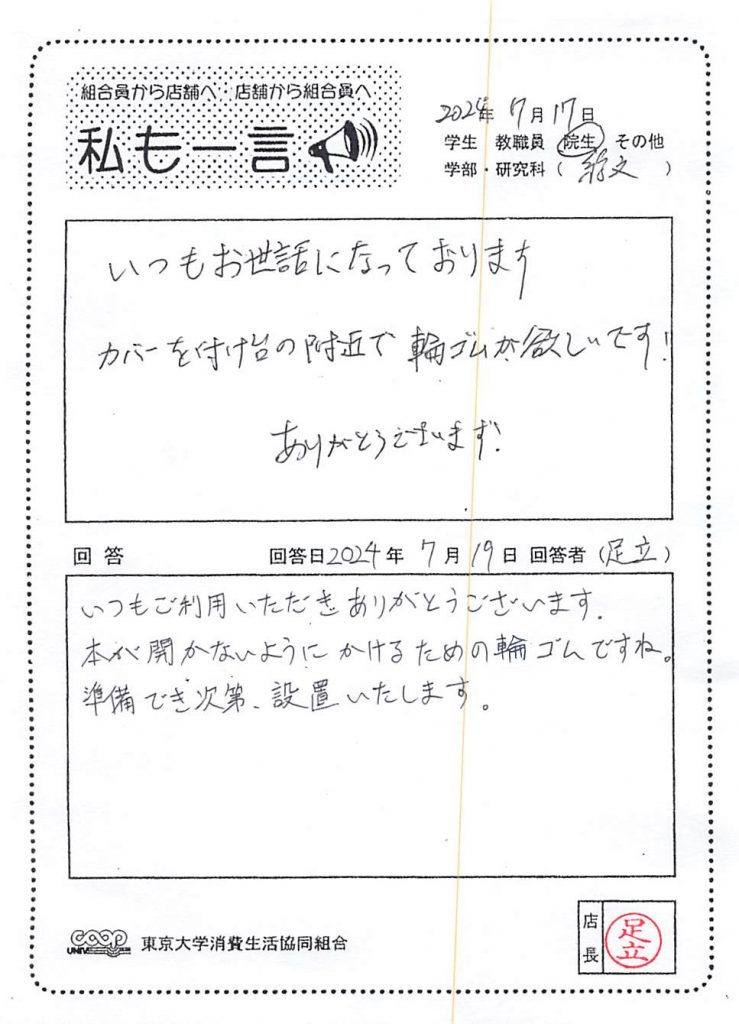 組合員から店舗へ 店舗から組合員へ
私も一言
2024年 7月17日
学生 教職員 院生 その他
学部・研究科（ 総文 ）
いつもお世話になっております
カバーを付け台の附近で輪ゴムが欲しいです!
ありがとうございます!
回答 回答日2024年 7月19日 回答者（足立）
いつもご利用いただきありがとうございます.
本が開かないようにかけるための輪ゴムですね。
準備でき次第、設置いたします。
COOP UNIV. 東京大学消費生活協同組合
店長 足立